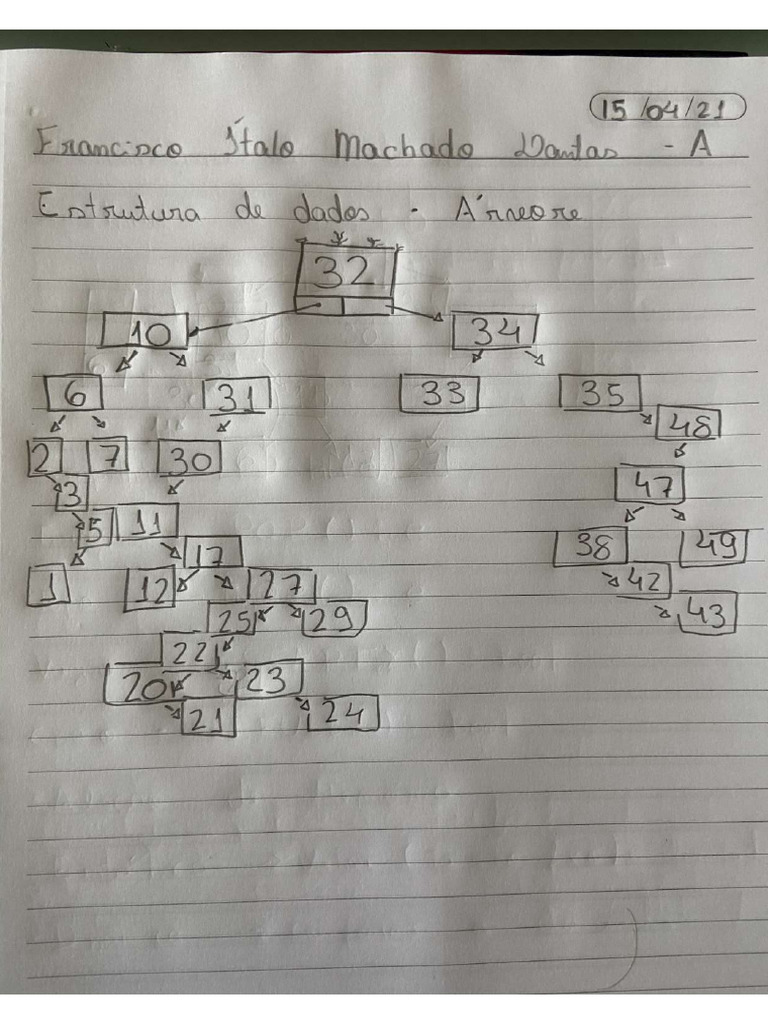 15/04/21
Francisco Ítalo Machado Dantas - A
Estrutura de dados - Árvore
32
10 34
6 31 33 35
48
2 7 30 47
3
5 11 38 49
17
1 12 27 42
25 29 43
22
20 23
21 24